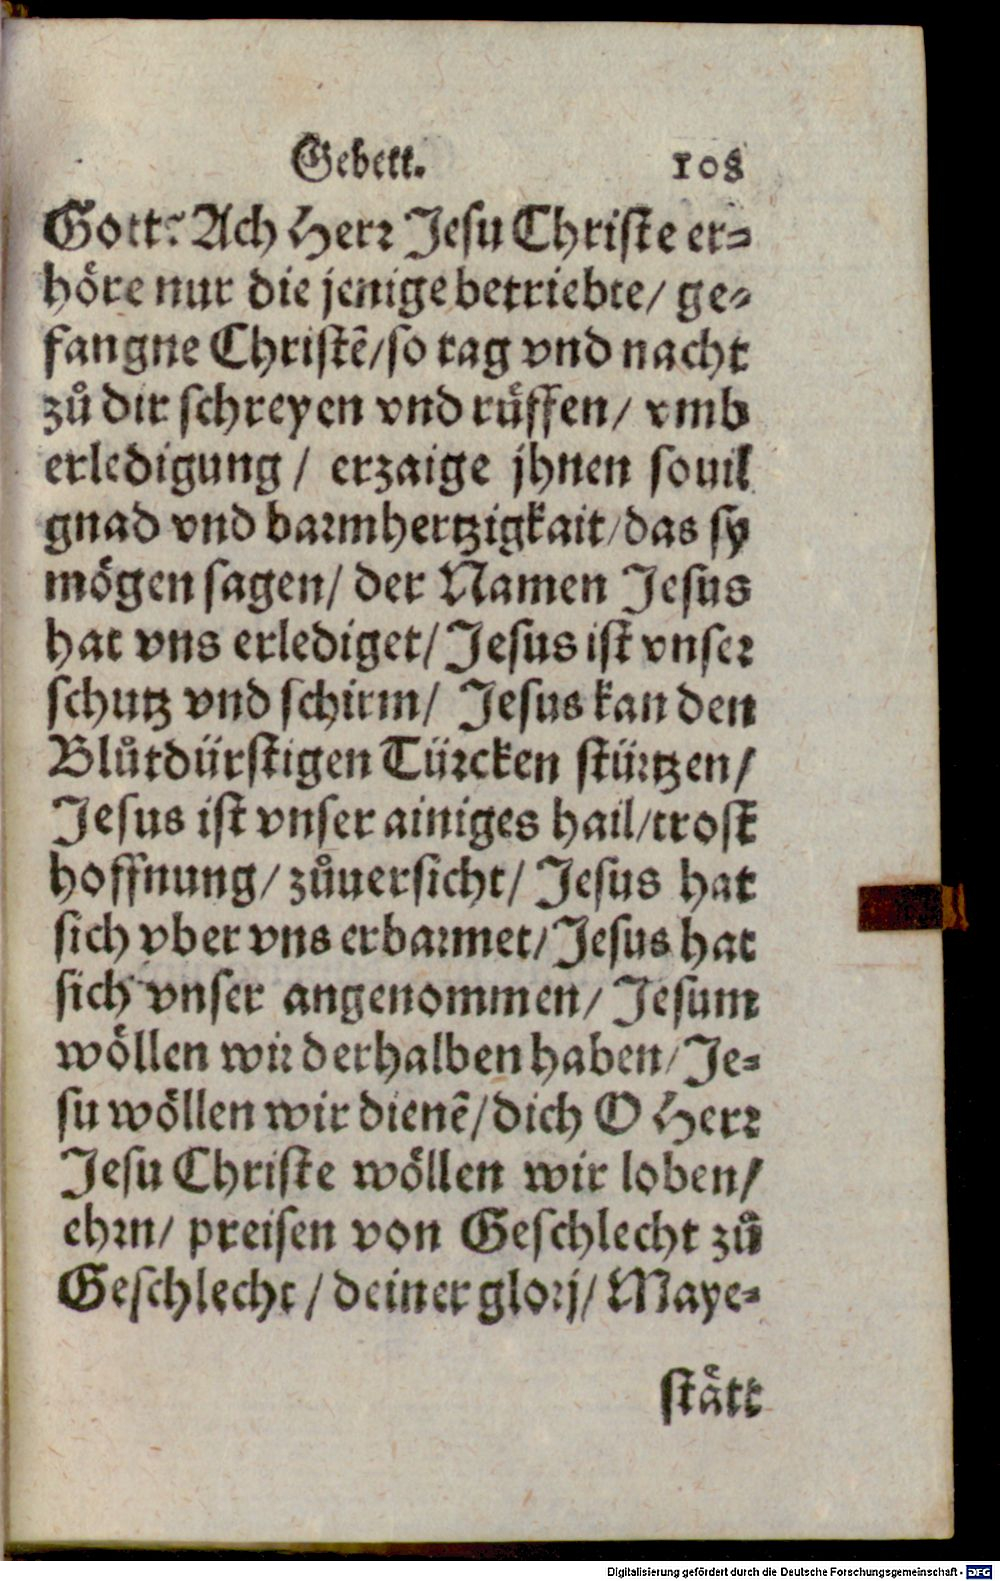 Gebett. 108
Gott? Ach Herr Jesu Christe er=
höre nur die jenige betriebte/ ge=
fangne Christẽ/so tag vnd nacht
zů dir schreyen vnd rüffen/ vmb
erledigung / erzaige jhnen souil
gnad vnd barmhertzigkait/das sy
mögen sagen/ der Namen Jesus
hat vns erlediget/ Jesus ist vnser
schutz vnd schirm/ Jesus kan den
Blůtdürstigen Türcken stürtzen/
Jesus ist vnser ainiges hail/trost
hoffnung/ zůuersicht/ Jesus hat
sich vber vns erbarmet/ Jesus hat
sich vnser angenommen/ Jesum
wöllen wir derhalben haben/ Je=
su wöllen wir dienẽ/dich O Herr
Jesu Christe wöllen wir loben/
ehrn/ preisen von Geschlecht zů
Geschlecht / deiner glorj/ Maye=
stätt
Digitalisierung gefördert durch die Deutsche Forschungsgemeinschaft - DFG